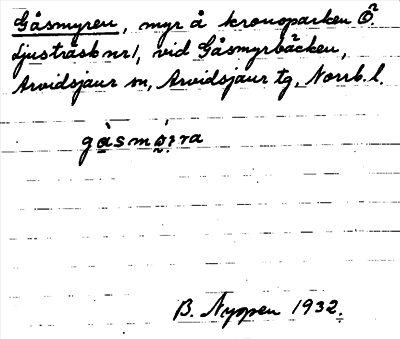 Gåsmyren, myr å kronoparken Ö.
Ljusträsk nr 1, vid Gåsmyrbäcken,
Arvidsjaur sn, Arvidsjaur tg, Norrb. l.
gàsmø̀ra
B. Nyppen 1932.